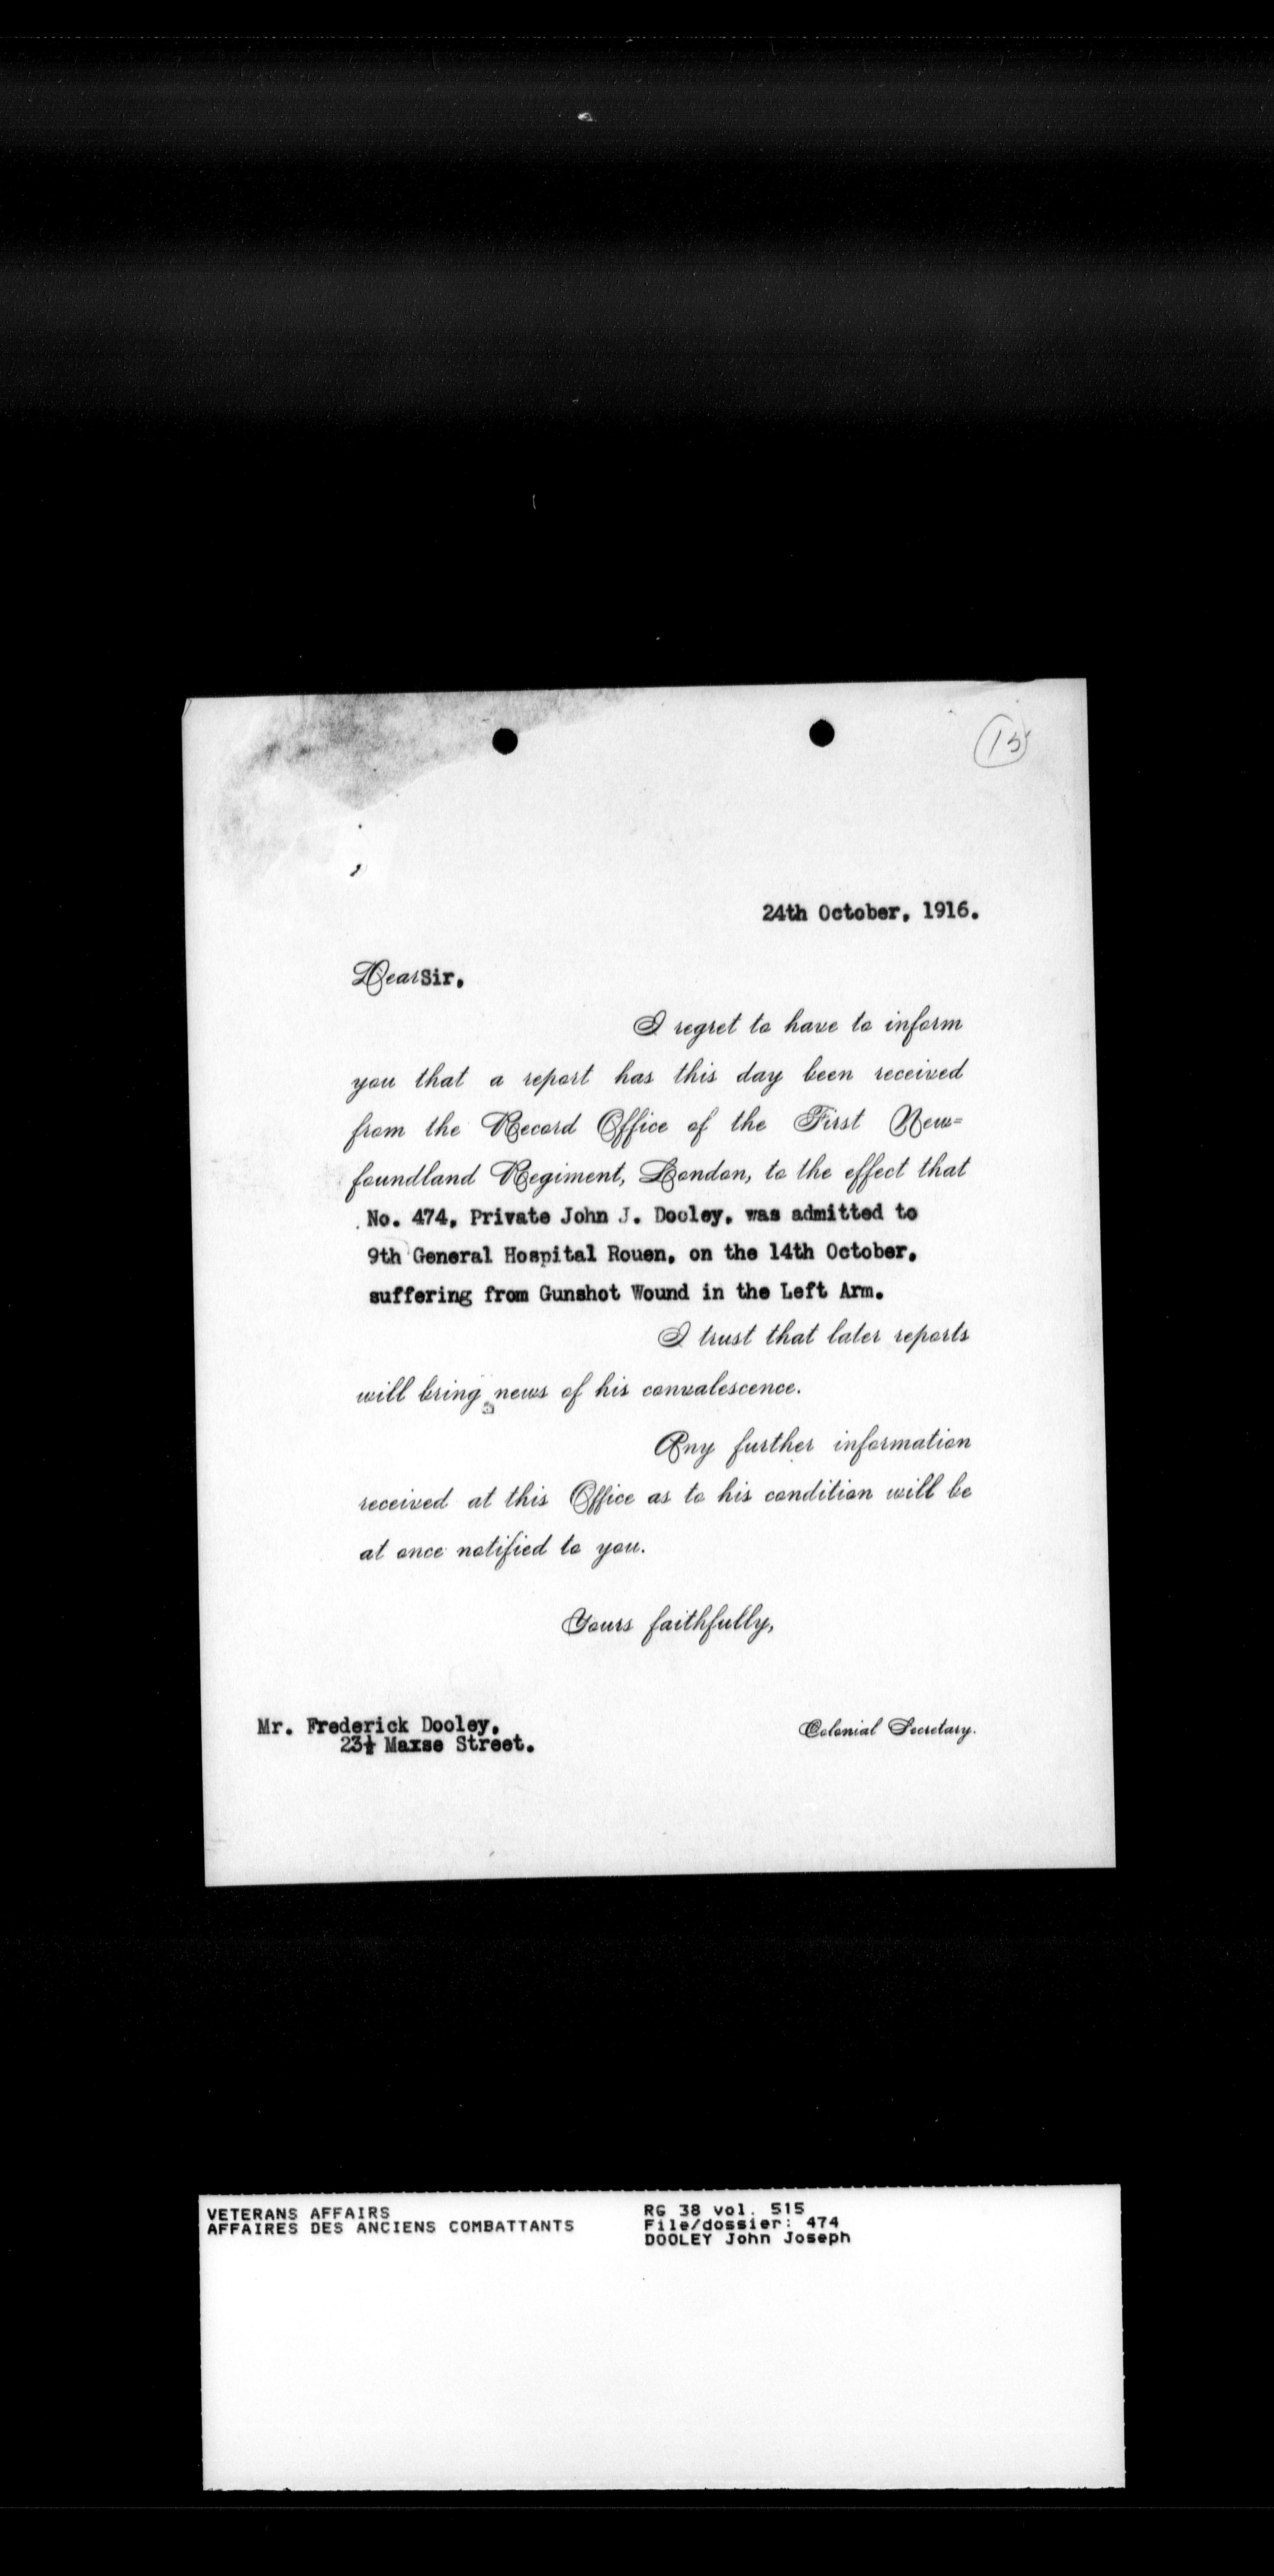 15
24th October, 1916.
Dear Sir,
I regret to have to inform
you that a report has this day been received
from the Record Office of the First New=
foundland Regiment, London, to the effect that
No. 474, Private John J. Dooley, was admitted to
9th General Hospital Rouen, on the 14th October,
suffering from Gunshot Wound in the Left Arm.
I trust that later reports
will bring news of his convalescence.
Any further information
received at this Office as to his condition will be
at once notified to you.
Yours faithfully,
Colonial Secretary.
Mr. Frederick Dooley,
23½ Maxse Street.
VETERANS AFFAIRS
AFFAIRES DES ANCIENS COMBATTANTS
RG 38 vol. 515
File/dossier: 474
DOOLEY John Joseph